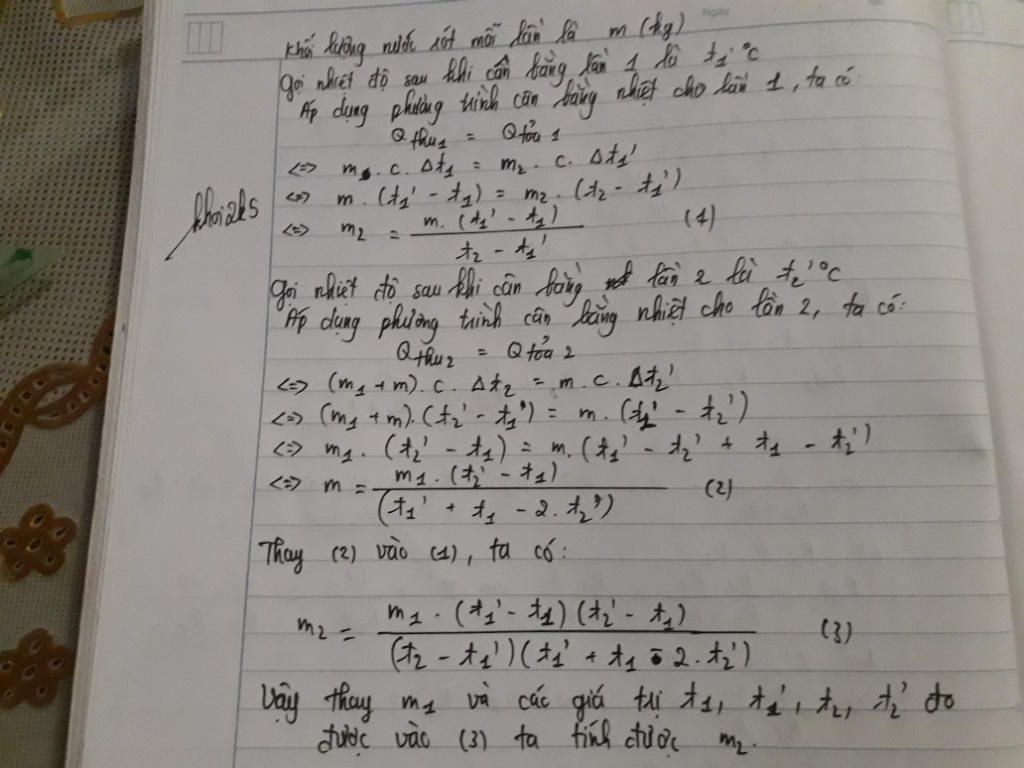 Ngày
khối lượng nước rót mỗi lần là m (kg)
Gọi nhiệt độ sau khi cân bằng lần 1 là t₁' °C
Áp dụng phương trình cân bằng nhiệt cho lần 1, ta có:
Q thu₁ = Q tỏa 1
<=> m . c. Δt₁ = m₂ . c. Δt₁'
<=> m . (t₁' - t₁) = m₂ . (t₂ - t₁')
<=> m₂ = m. (t₁' - t₁) / t₂ - t₁' (1)
khoi2k5
Gọi nhiệt độ sau khi cân bằng lần 2 là t₂' °C
Áp dụng phương trình cân bằng nhiệt cho lần 2, ta có:
Q thu₂ = Q tỏa 2
<=> (m₁ + m). c. Δt₂ = m. c. Δt₂'
<=> (m₁ + m). (t₂' - t₁) = m. (t₁' - t₂')
<=> m₁ . (t₂' - t₁) = m. (t₁' - t₂' + t₁ - t₂')
<=> m = m₁ . (t₂' - t₁) / (t₁' + t₁ - 2. t₂') (2)
Thay (2) vào (1), ta có:
m₂ = m₁ . (t₁' - t₁) (t₂' - t₁) / (t₂ - t₁') (t₁' + t₁ - 2. t₂') (3)
Vậy thay m₁ và các giá trị t₁, t₁', t₂, t₂' đo
được vào (3) ta tính được m₂.